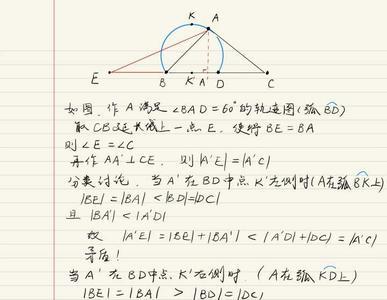 K A
E B K' A' D C
如图,作 A 满足 ∠BAD=60° 的轨迹图(弧BD)
取 CB 延长线上一点 E,使得 BE=BA
则 ∠E=∠C
再作 AA'⊥CE,则 |A'E|=|A'C|
分类讨论,当 A' 在 BD 中点 K' 左侧时(A在弧BK上)
|BE|=|BA|<|BD|=|DC|
且 |BA'|<|A'D|
故 |A'E|=|BE|+|BA'|<|A'D|+|DC|=|A'C|
矛盾!
当 A' 在 BD 中点 K' 右侧时.(A在弧KD上)
|BE|=|BA| > |BD|=|DC|